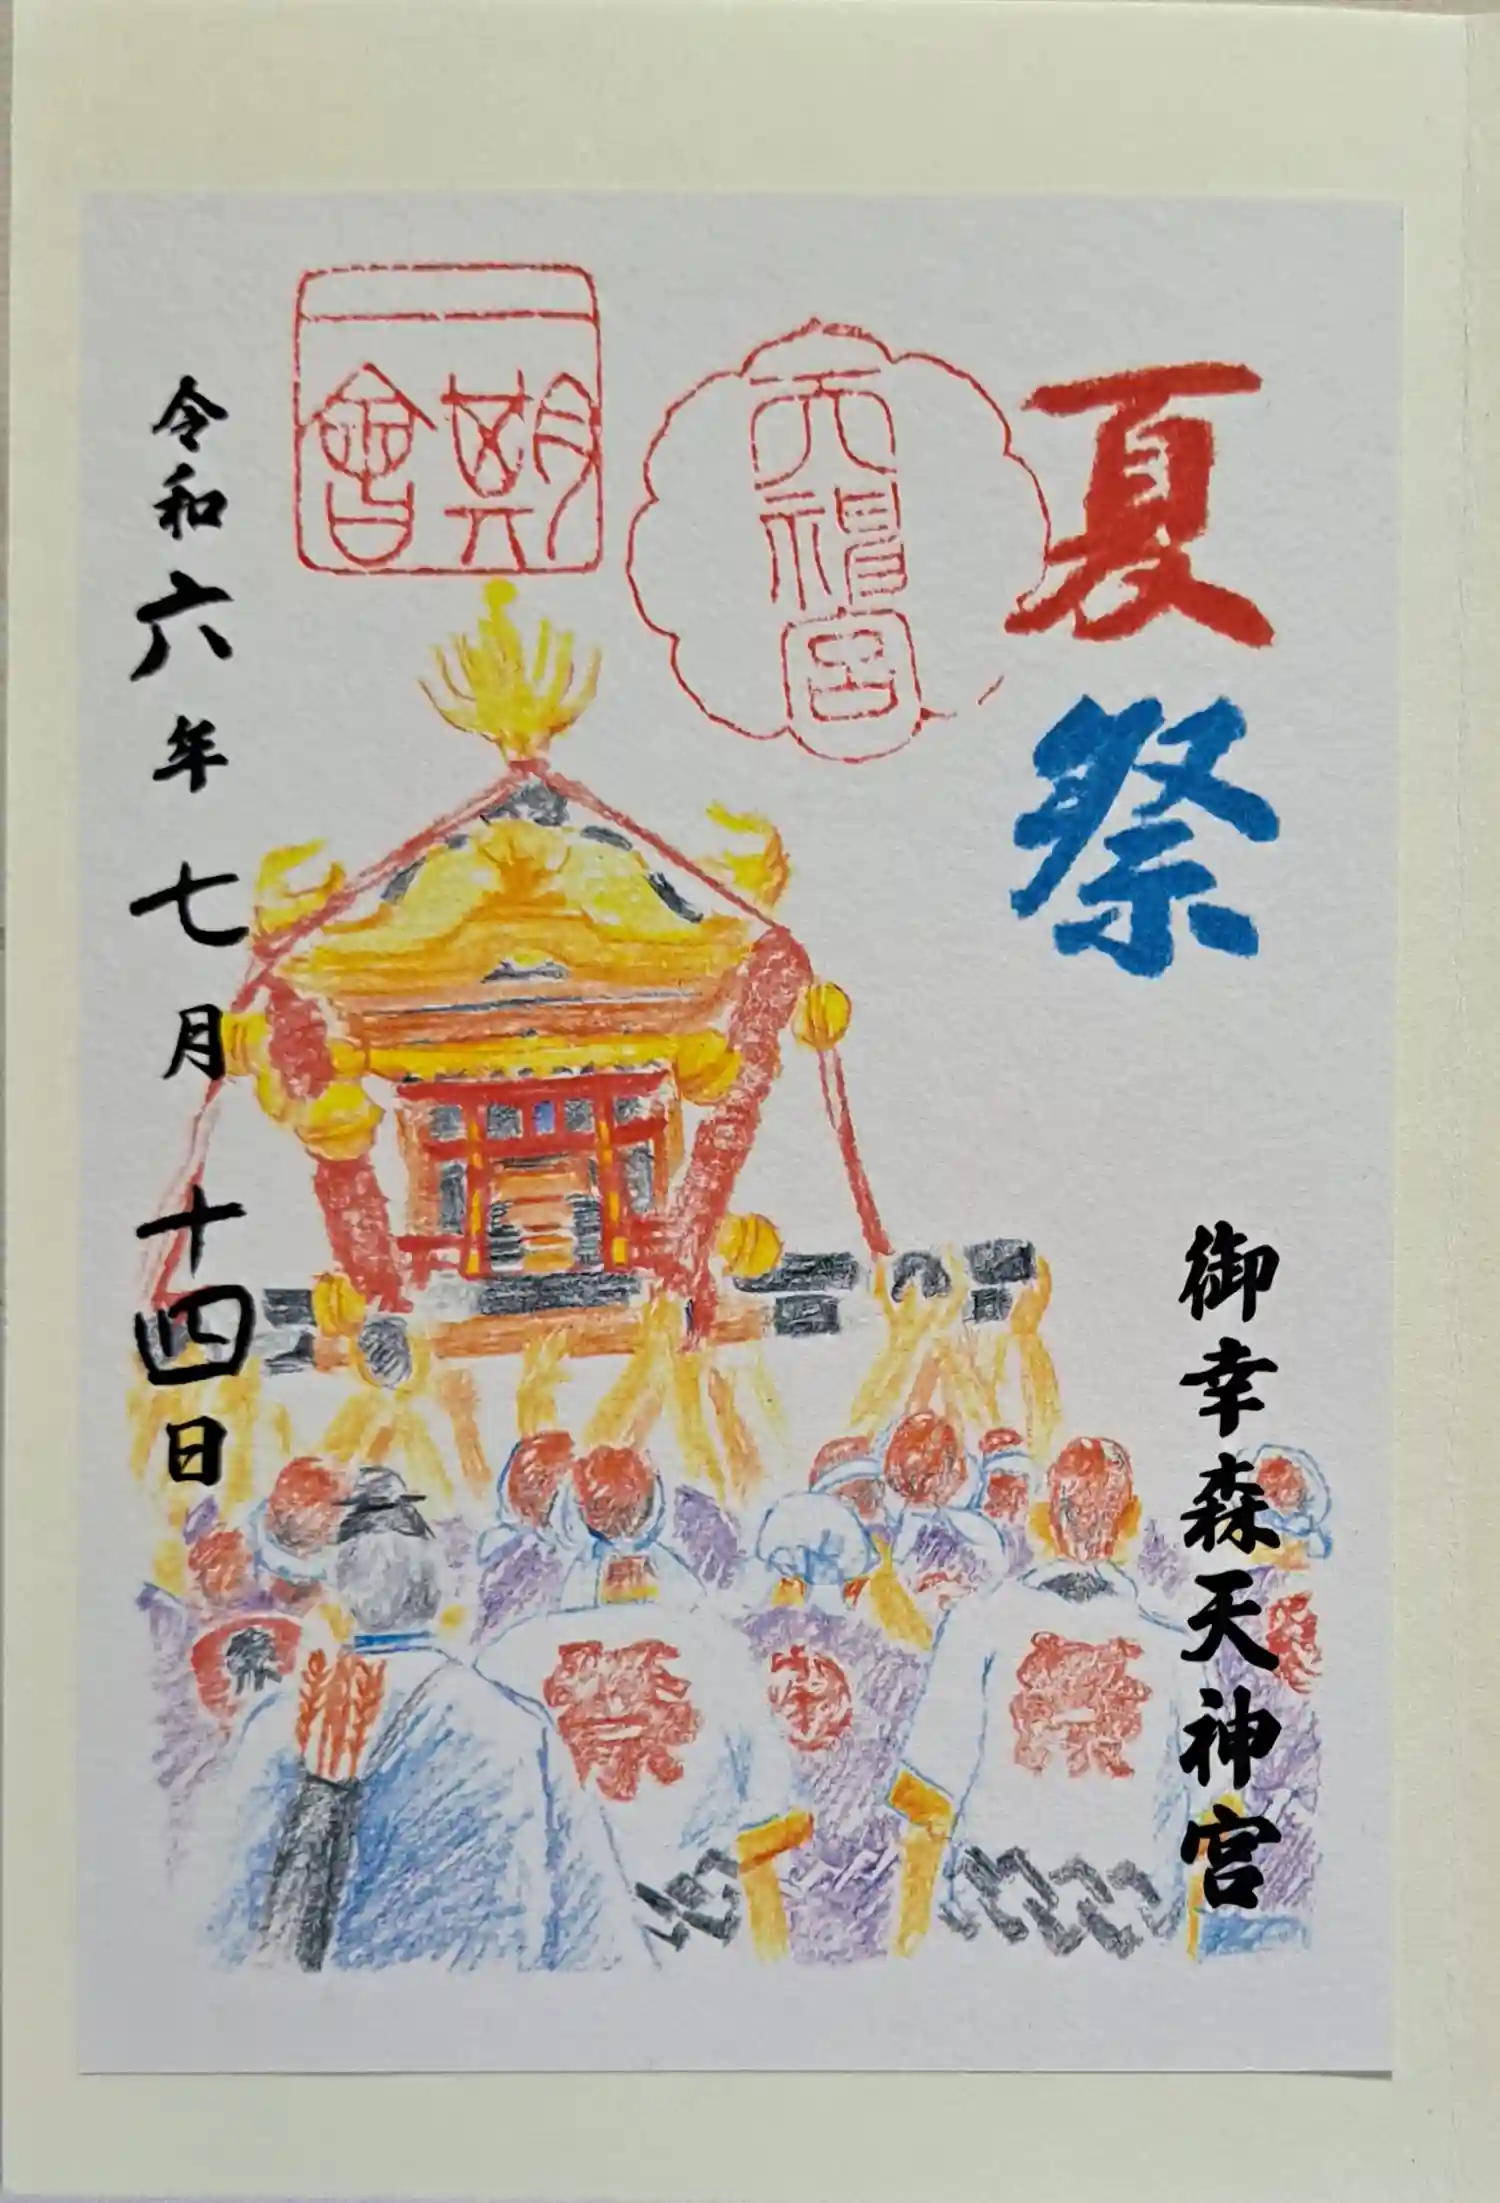 夏祭
御幸森天神宮
天神宮
一期會
令和六年七月十四日
祭
祭
祭